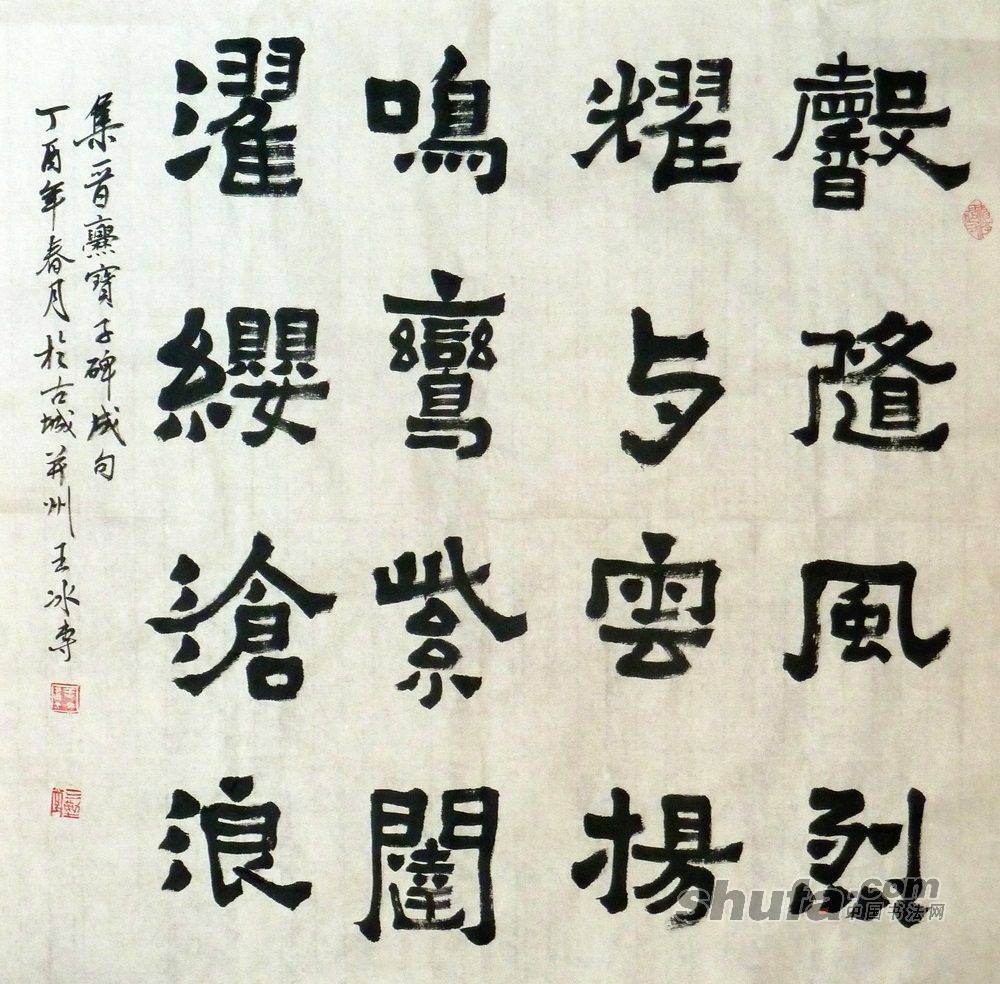 馨隨風烈
耀与雲揚
鳴鸞紫闥
濯纓滄浪
集晋爨寶子碑成句
丁酉年春月於古城并州王冰書
shufa.com
中国书法网